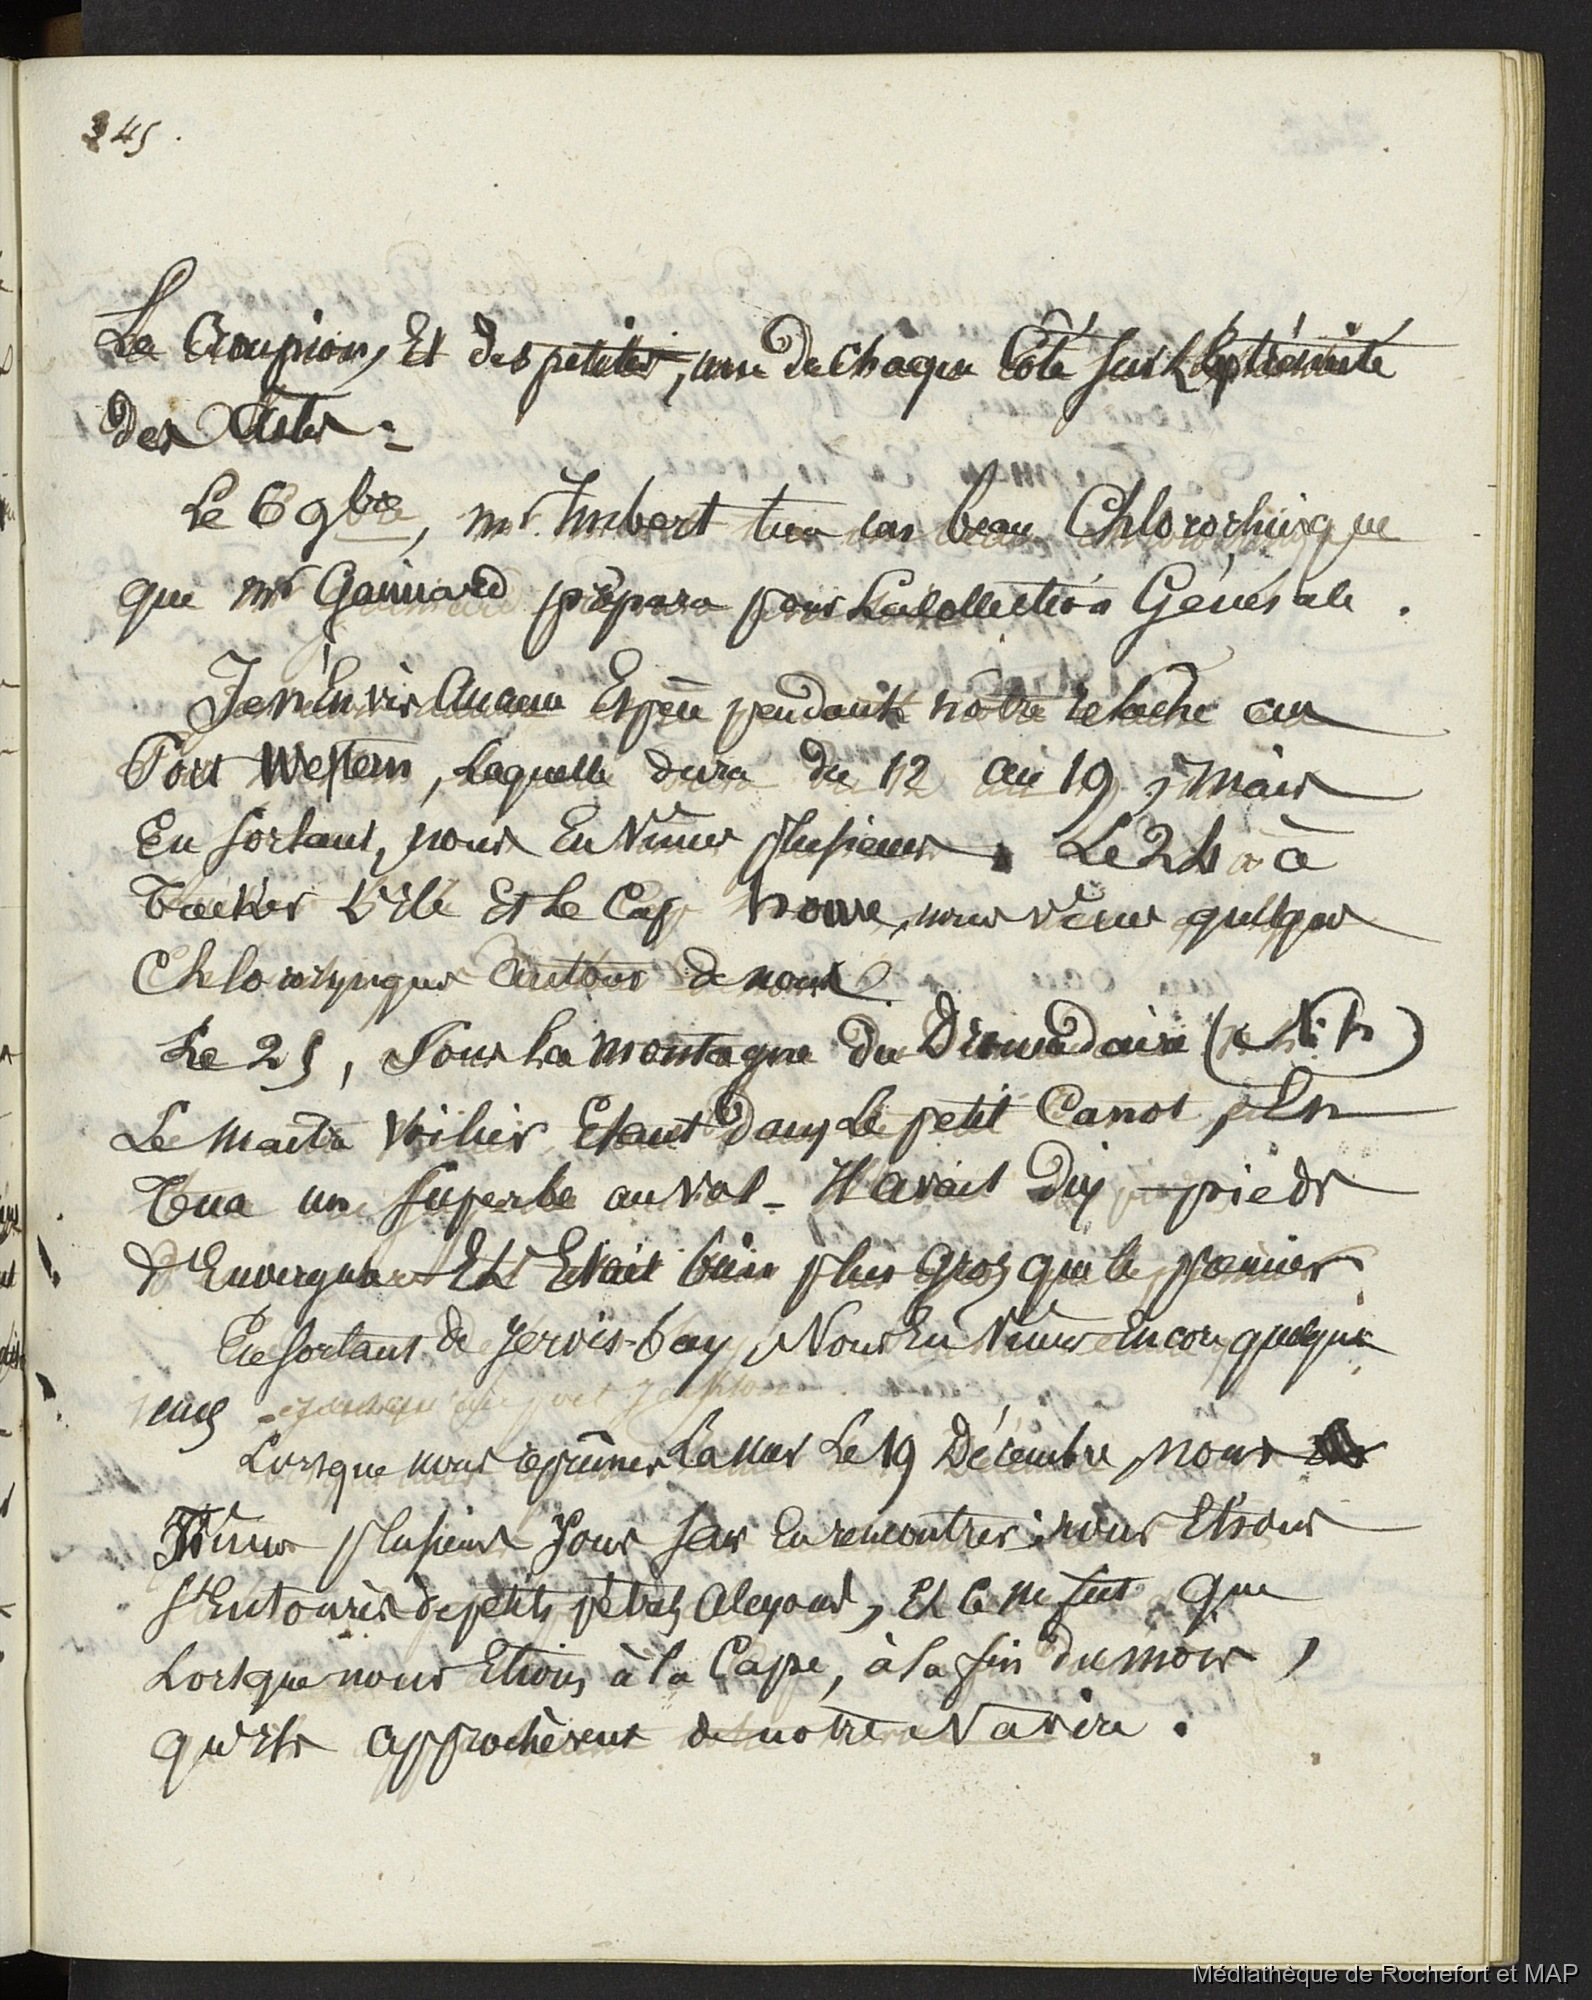 245.
Le Croupion, Et des petites, une de chaque Côté sur L'Extrémité
des Aîsles.
Le 6 9bre, mr Imbert tua un beau Chlororhinque
que mr Gaimard prépara pour La Collection Générale.
Je n'En vis Aucun Espéce pendant nôtre relache au
Port Western, Laquelle dura du 12 au 19, Mais
En sortant, nous En Vîmes plusieurs. Le 24 à
L'île Et Le Cap howe, nous vîmes quelques
Chlororhynques Autour de nous
Le 25, Sous La montagne du Dromadaire
Le Maître Voilier Etant Dans Le petit Canot, En
Tua un superbe au Vol - Il avait Dix pieds
d'Envergure Et Etait bien plus Gros que le premier
En sortant de Jervis-bay, Nous En Vîmes Encore quelques
uns - jusqu'au port Jackson
Lorsque nous reprîmes La Mer Le 19 Décembre, nous
fûmes plusieurs Jours sans En rencontrer; nous Etions
Entourés de petits pétrels Alcyons, Et Ce ne fut que
Lorsque nous Etions à la Cape, à la fin du mois,
qu'ils approchèrent de notre Navire.
Médiathèque de Rochefort et MAP